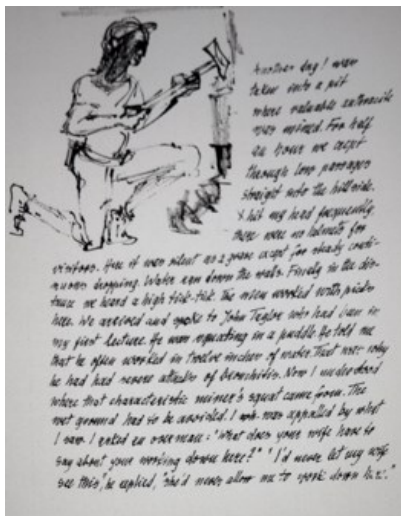 Another day I was
taken into a pit
where valuable anthracite
was mined. For half
an hour we crept
through low passages
straight into the hillside.
I hit my head frequently,
there were no helmets for
visitors. Here it was silent as a grave except for steady conti-
nuous dropping. Water ran down the walls. Finally in the dis-
tance we heard a high tick-tick. The men worked with picks
here. We arrived and spoke to John Taylor who had been in
my first lecture. He was squatting in a puddle. He told me
that he often worked in twelve inches of water. That was why
he had had severe attacks of bronchitis. Now I understood
where that characteristic miner's squat came from. The
wet ground had to be avoided. I was appalled by what
I saw. I asked an overman: "What does your wife have to
say about your working down here?" "I'd never let my wife
see this", he replied, "she'd never allow me to work down here."